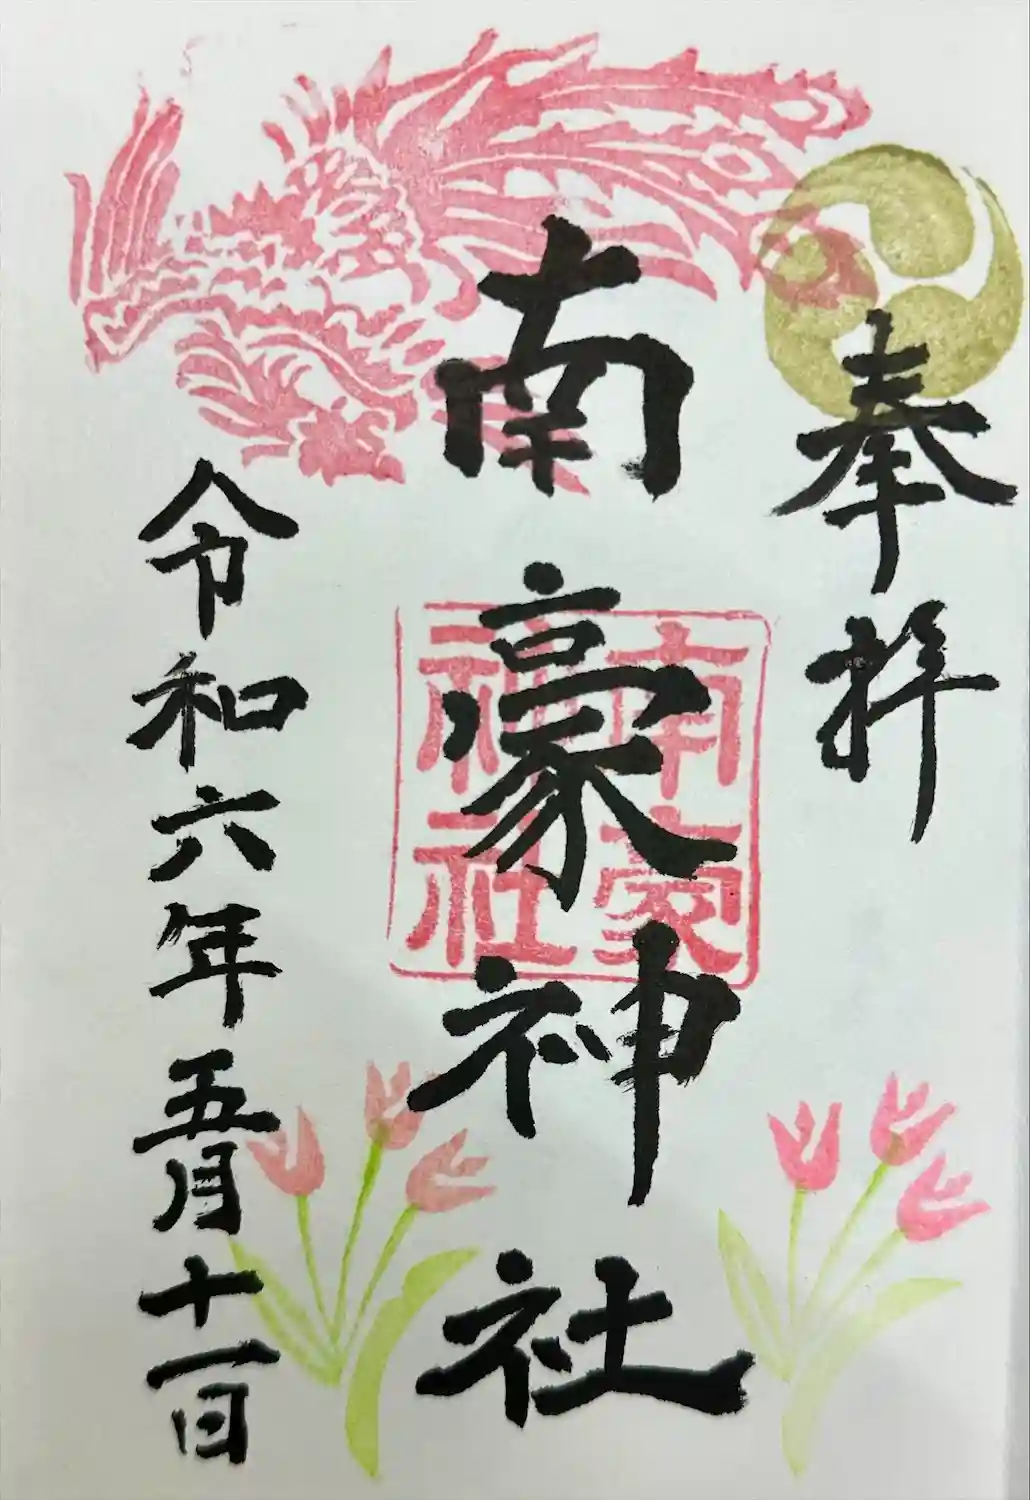 奉拝
南豪神社
南豪
神社
令和六年五月十一日